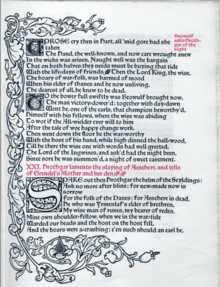 Beowulf
asks Hroth-
gar of the
night
UPROSE cry then in Hart, all 'mid gore had she
taken
The hand, the well-known, and now care wrought anew
In the wicks was arisen. Naught well was the bargain
That on both halves they needs must be buying that tide
With the life-days of friends. Then the Lord king, the wise,
The hoary of war-folk, was harmed of mood
When his elder of thanes and he now unliving,
The dearest of all, he knew to be dead.
To the bower full swiftly was Beowulf brought now,
The man victory-dower'd; together with day-dawn
Went he, one of the earls, that champion beworthy'd,
Himself with his fellows, where the wise was abiding
To wot if the All-wielder ever will to him
After the tale of woe happy change work.
Then went down the floor he the war-worthy
With the host of his hand, while high dinned the hall-wood,
Till he there the wise one with words had well greeted,
The Lord of the Ingwines, and ask'd had the night been,
Since sore he was summon'd, a night of sweet easement.
XXI. Hrothgar laments the slaying of Aeschere, and tells
of Grendel's Mother and her den
SPAKE out then Hrothgar the helm of the Scyldings:
Ask no more after bliss; for new-made now is
sorrow
For the folk of the Danes; for Aeschere is dead,
He who was Yrmenlaf's elder of brethren,
My wise man of runes, my bearer of redes,
Mine own shoulder-fellow, when we in the war-tide
Warded our heads and the host on the host fell,
And the boars were a-crashing: e'en such should an earl be,